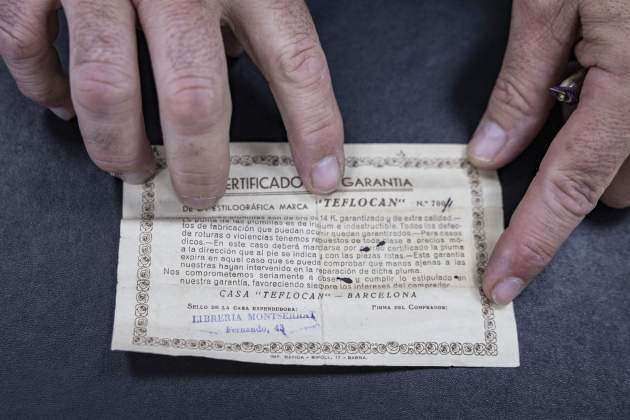 CERTIFICADO DE GARANTIA
DE LA ESTILOGRÁFICA MARCA "TEFLOCAN" N.º 700
plumines son de oro de 14 K. garantizado y de extra calidad.—
La punta de las plumillas es de iridium e indestructible. Todos los defec-
tos de fabricación que puedan ocurrir quedan garantizados.—Para casos
de roturas o violencias tenemos repuestos de toda clase a precios mó-
dicos.—En este caso deberá mandarse por correo certificado la pluma
a la dirección que al pie se indica y con las piezas rotas.—Esta garantía
expira en aquel caso que se pueda comprobar que manos ajenas a las
nuestras hayan intervenido en la reparación de dicha pluma.
Nos comprometemos seriamente a observar y cumplir lo estipulado en
nuestra garantía, favoreciendo siempre los intereses del comprador.
CASA "TEFLOCAN" — BARCELONA
SELLO DE LA CASA EXPENDEDORA: FIRMA DEL COMPRADOR:
LIBRERIA MONTSERRAT
Fernando, 43
IMP. RÁPIDA - RIPOLL, 17 - BARNA.